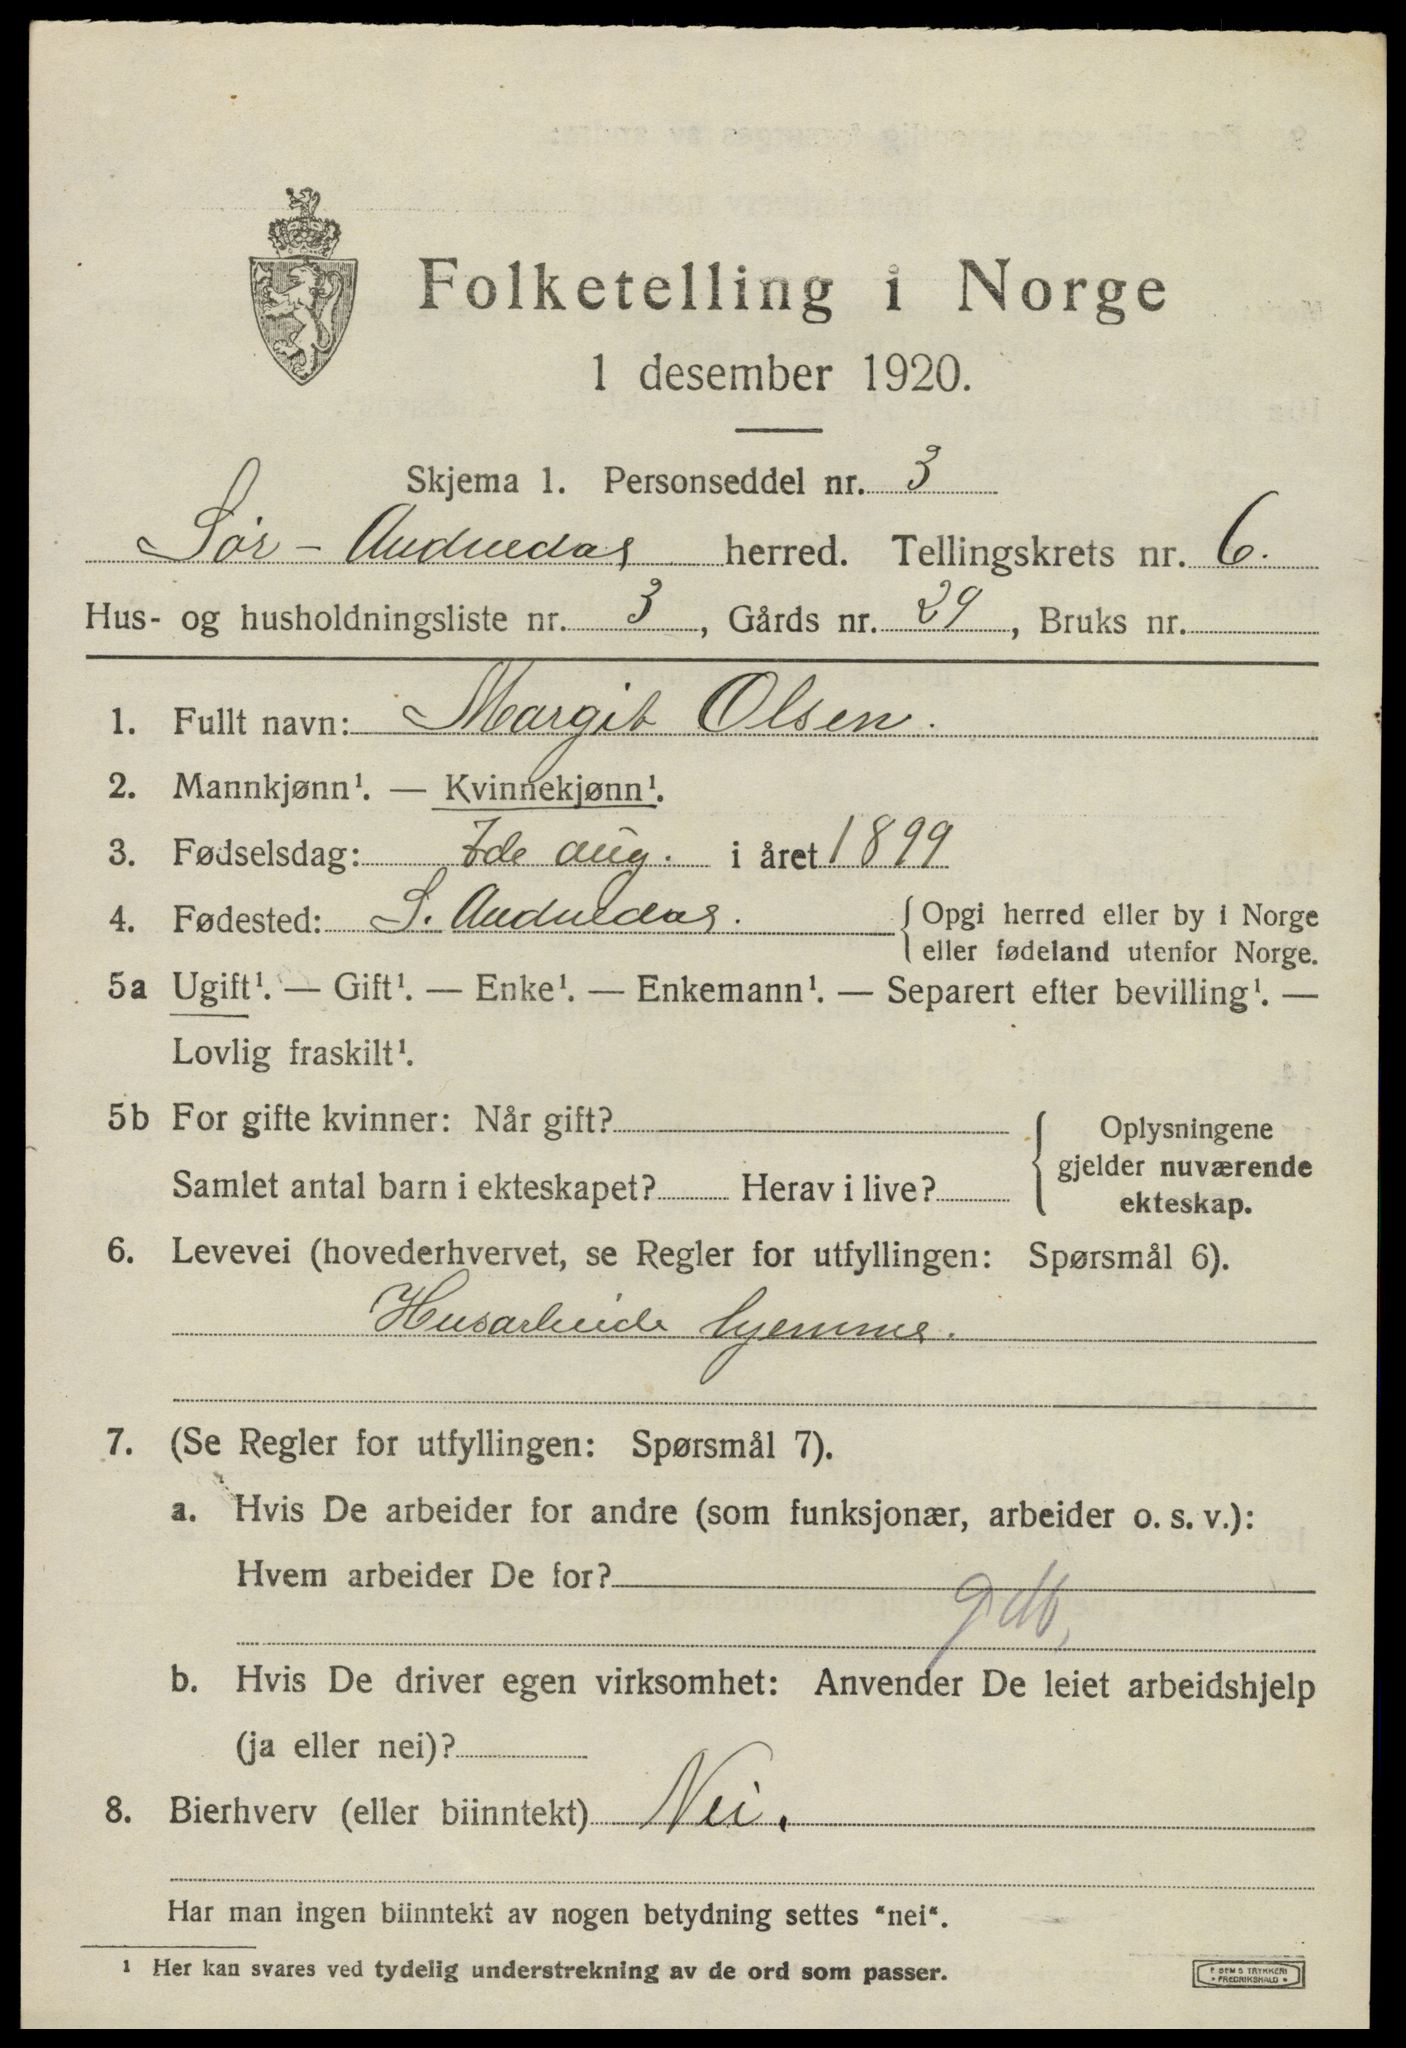 Folketelling i Norge
1 desember 1920.
Skjema 1. Personseddel nr. 3
Sør-Audnedal herred. Tellingskrets nr. 6.
Hus- og husholdningsliste nr. 3, Gårds nr. 29, Bruks nr.
1. Fullt navn: Margit Olsen.
2. Mannkjønn¹. — Kvinnekjønn¹.
3. Fødselsdag: 7de aug. i året 1899
4. Fødested: S. Audnedal. Opgi herred eller by i Norge
eller fødeland utenfor Norge.
5a Ugift¹. — Gift¹. — Enke¹. — Enkemann¹. — Separert efter bevilling¹. —
Lovlig fraskilt¹.
5b For gifte kvinner: Når gift?
Samlet antal barn i ekteskapet? Herav i live?
Oplysningene
gjelder nuværende
ekteskap.
6. Levevei (hovederhvervet, se Regler for utfyllingen: Spørsmål 6).
Husarbeide hjemme.
7. (Se Regler for utfyllingen: Spørsmål 7).
a. Hvis De arbeider for andre (som funksjonær, arbeider o. s. v.):
Hvem arbeider De for?
b. Hvis De driver egen virksomhet: Anvender De leiet arbeidshjelp
(ja eller nei)?
8. Bierhverv (eller biinntekt) Nei.
Har man ingen biinntekt av nogen betydning settes "nei".
¹ Her kan svares ved tydelig understrekning av de ord som passer.
E SEMS TRYKKERI
FREDRIKSHALD